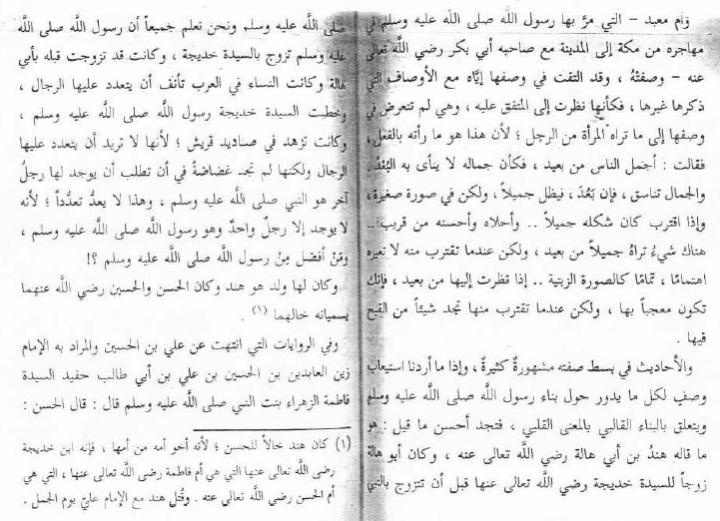 وأم معبد - التي مرَّ بها رسول الله صلى الله عليه وسلم في
مهاجره من مكة إلى المدينة مع صاحبه أبي بكر رضي الله تعالى
عنه - وصفتهُ ، وقد التقت في وصفها إيَّاه مع الأوصاف التي
ذكرها غيرها ، فكأنها نظرت إلى المتفق عليه ، وهي لم تتعرض في
وصفها إلى ما تراه المرأة من الرجل ؛ لأن هذا هو ما رأته بالفعل ،
فقالت : أجمل الناس من بعيد ، فكأن جماله لا ينأى به البُعْدُ .
والجمال تناسق ، فإن بَعُدَ ، فيظل جميلاً ، ولكن في صورة صغيرة ،
وإذا اقترب كان شكله جميلاً .. وأحلاه وأحسنه من قريب ..
هناك شيءٌ تراهُ جميلاً من بعيد ، ولكن عندما تقترب منه لا تعيره
اهتمامًا ، تمامًا كالصورة الزيتية .. إذا نظرت إليها من بعيد ، فإنك
تكون معجباً بها ، ولكن عندما تقترب منها تجد شيئاً من القبح
فيها .
والأحاديث في بسط صفته مشهورةٌ كثيرةٌ ، وإذا ما أردنا استيعاب
وصفٍ لكل ما يدور حول بناء رسول الله صلى الله عليه وسلم
ويتعلق بالبناء القالبي بالمعنى القلبي ، فتجد أحسن ما قيل : هو
ما قاله هندُ بن أبي هالة رضي الله تعالى عنه ، وكان أبو هالة
زوجاً للسيدة خديجة رضي الله تعالى عنها قبل أن تتزوج بالنبي
صلى الله عليه وسلم ونحن نعلم جميعاً أن رسول الله صلى الله
عليه وسلم تزوج بالسيدة خديجة ، وكانت قد تزوجت قبله بأبي
هالة وكانت النساء في العرب تأنف أن يتعدد عليها الرجال ،
وخطبت السيدة خديجة رسول الله صلى الله عليه وسلم ،
وكانت تزهد في صناديد قريش ؛ لأنها لا تريد أن يتعدد عليها
الرجال ولكنها لم تجد غضاضةً في أن تطلب أن يوجد لها رجلٌ
آخر هو النبي صلى الله عليه وسلم ، وهذا لا يعدُّ تعدُّداً ؛ لأنه
لا يوجد إلا رجلٌ واحدٌ وهو رسول الله صلى الله عليه وسلم ،
ومَنْ أفضل مِنْ رسول الله صلى الله عليه وسلم ؟!
وكان لها ولد هو هند وكان الحسن والحسين رضي الله عنهما
يسميانه خالهما (١) .
وفي الروايات التي انتهت عن علي بن الحسين والمراد به الإمام
زين العابدين بن الحسين بن علي بن أبي طالب حفيد السيدة
فاطمة الزهراء بنت النبي صلى الله عليه وسلم قال : قال الحسن :
(١) كان هند خالاً للحسن ؛ لأنه أخو أمه من أمها ، فإنه ابن خديجة
رضي الله تعالى عنها التي هي أم فاطمة رضي الله تعالى عنها ، التي هي
أم الحسن رضي الله تعالى عنه . وقُتل هند مع الإمام عليّ يوم الجمل .